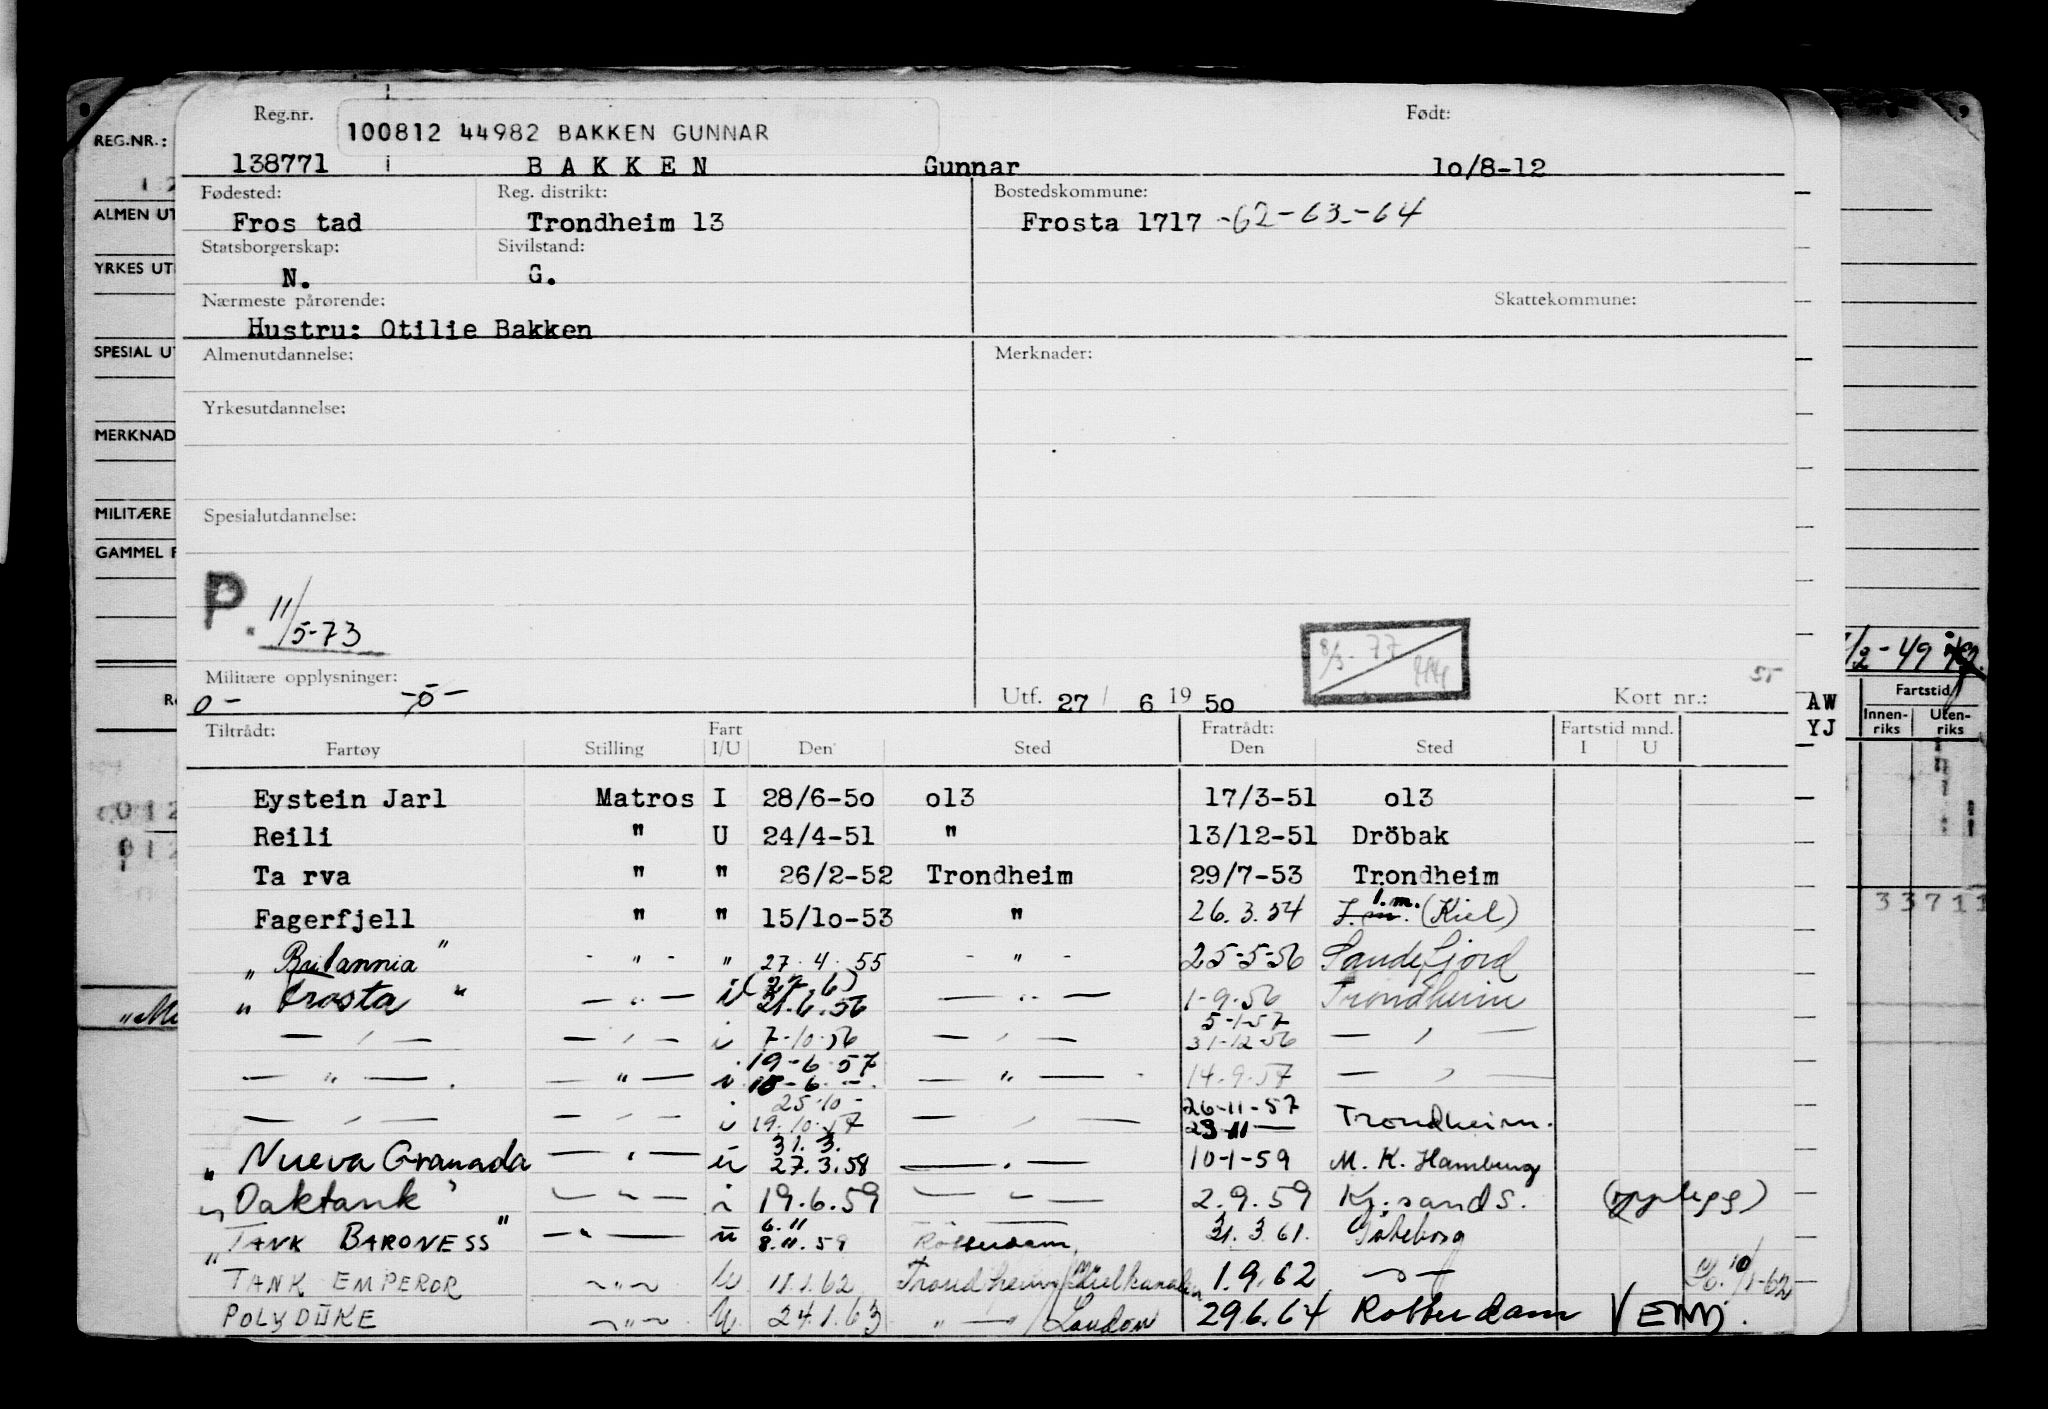 Reg.nr. Født:
100812 44982 BAKKEN GUNNAR
138771 B A K K E N Gunnar 1o/8-12
Fødested: Reg. distrikt: Bostedskommune:
Fros tad Trondheim 13 Frosta 1717 -62-63-64
Statsborgerskap: Sivilstand:
N. G.
Nærmeste pårørende: Skattekommune:
Hustru: Otilie Bakken
Almenutdannelse: Merknader:
Yrkesutdannelse:
Spesialutdannelse:
P. 11/5-73
8/3-77
Militære opplysninger:
0- -0-
Utf. 27/ 6 19 5o Kort nr.: 55
Tiltrådt: Fart Fratrådt: Fartstid mnd.
Fartøy Stilling I/U Den Sted Den Sted I U
Eystein Jarl Matros I 28/6-5o o13 17/3-51 o13
Reili " U 24/4-51 " 13/12-51 Dröbak
Ta rva " " 26/2-52 Trondheim 29/7-53 Trondheim
Fagerfjell " " 15/1o-53 " 26.3.54 I.m. (Kiel)
" Britannia " - " - " 27.4.55 - " - 25-5-56 Sandefjord
" Frosta " — " — i (27.6) 21.6.56 — " — 1-9-56 Trondheim
— " — — " — i 7-10-56 — " — 5-1-57 31-12-56 — " —
— " — . — " — i 19-6-57 18-6- — — " — 14.9.57 — " —
— " — — " — i 25-10- 19.10.57 — " — 26-11-57 23-11 — Trondheim.
" Nueva Granada — " — ü 31.3. 27.3.58 — " — 10-1-59 M. K. Hamburg
" Oaktank " — " — i 19.6.59 — " — 2.9.59 Kr.sand S. (opplegg)
" TANK BARONESS " — " — ü 6.11 8.11.59 Rotterdam 31.3.61. Göteborg
TANK EMPEROR — " — U 11.1.62 Trondheim/Kielkanalen 1.9.62 — " — 10/1-62
POLYDUKE — " — U 24.1.63 " — / London 29.6.64 Rotterdam
REG.NR.:
ALMEN UT
YRKES UT
SPESIAL UT
MERKNAD
MILITÆRE
GAMMEL F
AW
YJ
/2-49
Fartstid
Innen-riks Uten-riks
33711